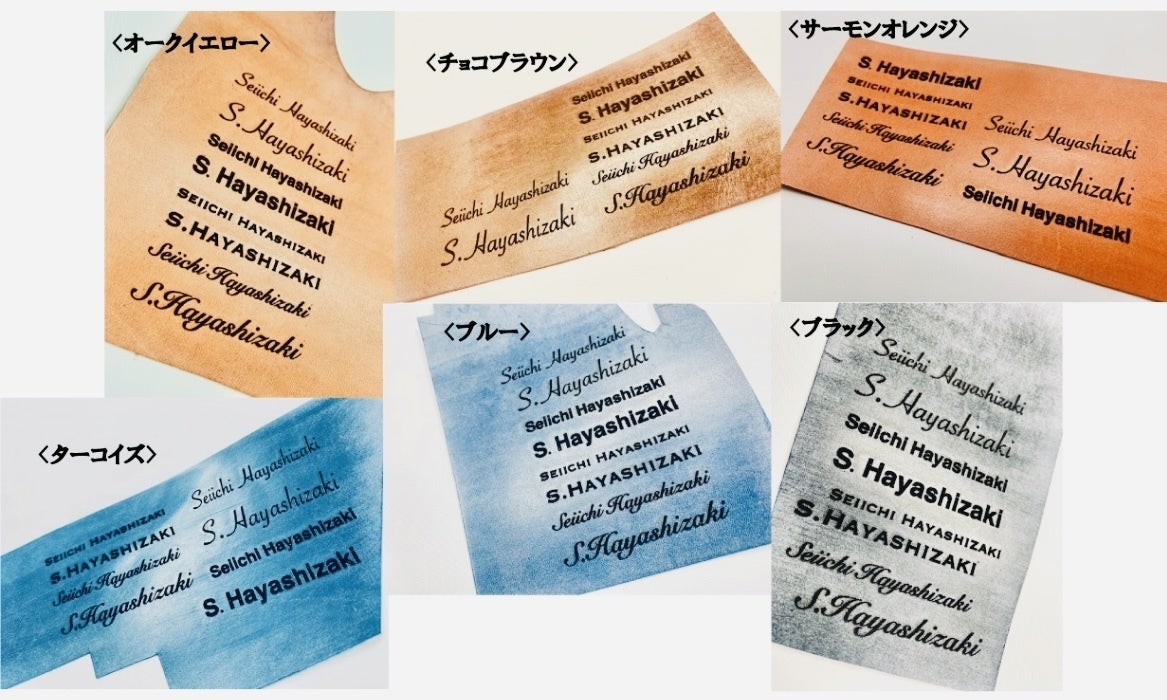 〈オークイエロー〉
Seiichi Hayashizaki
S. Hayashizaki
Seiichi Hayashizaki
S. Hayashizaki
SEIICHI HAYASHIZAKI
S.HAYASHIZAKI
Seiichi Hayashizaki
S.Hayashizaki
〈チョコブラウン〉
Seiichi Hayashizaki
S. Hayashizaki
SEIICHI HAYASHIZAKI
S.HAYASHIZAKI
Seiichi Hayashizaki
S.Hayashizaki
Seiichi Hayashizaki
S. Hayashizaki
〈サーモンオレンジ〉
S. Hayashizaki
SEIICHI HAYASHIZAKI
S.HAYASHIZAKI
Seiichi Hayashizaki
S.Hayashizaki
Seiichi Hayashizaki
S. Hayashizaki
Seiichi Hayashizaki
〈ターコイズ〉
SEIICHI HAYASHIZAKI
S.HAYASHIZAKI
Seiichi Hayashizaki
S.Hayashizaki
Seiichi Hayashizaki
S. Hayashizaki
Seiichi Hayashizaki
S. Hayashizaki
〈ブルー〉
Seiichi Hayashizaki
S. Hayashizaki
Seiichi Hayashizaki
S. Hayashizaki
SEIICHI HAYASHIZAKI
S.HAYASHIZAKI
Seiichi Hayashizaki
S.Hayashizaki
〈ブラック〉
Seiichi Hayashizaki
S. Hayashizaki
Seiichi Hayashizaki
S. Hayashizaki
SEIICHI HAYASHIZAKI
S.HAYASHIZAKI
Seiichi Hayashizaki
S.Hayashizaki